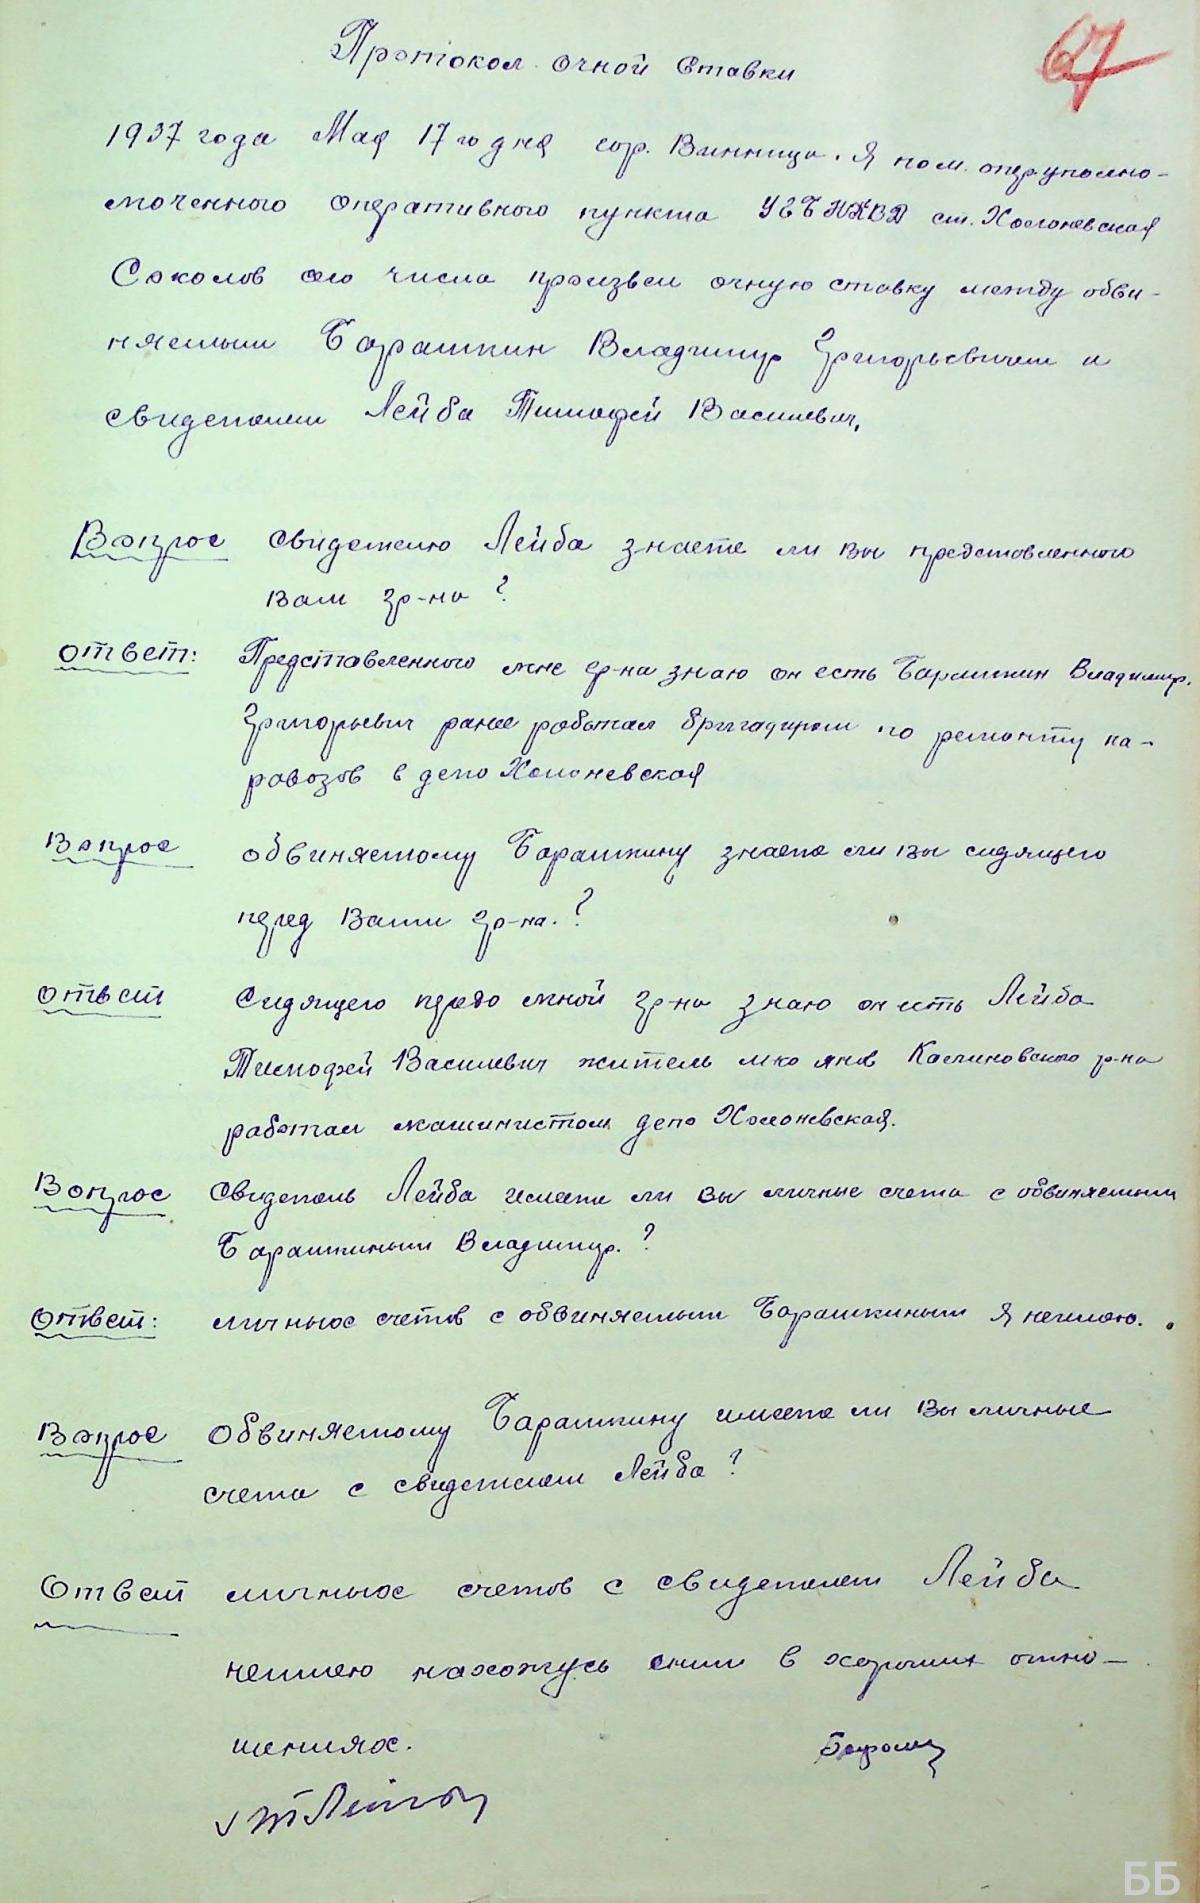 67
Протокол очной ставки
1937 года Мая 17го дня гор. Винница. Я пом. оперуполно-
моченного оперативного пункта УГБ НКВД ст. Холоневская
Соколов сего числа произвел очную ставку между обви-
няемым Барашкин Владимир Григорьевичем и
свидетелем Лейба Тимофей Василевич,
Вопрос свидетелю Лейба знаете ли вы представленного
вам гр-на?
ответ: Представленного мне гр-на знаю он есть Барашкин Владимир.
Григорьевич ранее работал бригадиром по ремонту па-
ровозов в депо Холоневская
Вопрос обвиняемому Барашкину знаете ли вы сидящего
перед Вами гр-на.?
ответ Сидящего передо мной гр-на знаю он есть Лейба
Тимофей Василевич житель м-ко Янов Калиновского р-на
работал машинистом депо Холоневская.
Вопрос Свидетель Лейба имеете ли вы личные счета с обвиняемым
Барашкиным Владимир.?
Ответ: личных счетов с обвиняемым Барашкиным я неимею.
Вопрос Обвиняемому Барашкину имеете ли Вы личные
счета с свидетелем Лейба?
Ответ личных счетов с свидетелем Лейба
неимею нахожусь сним в хороших отно-
шениях.
ББ